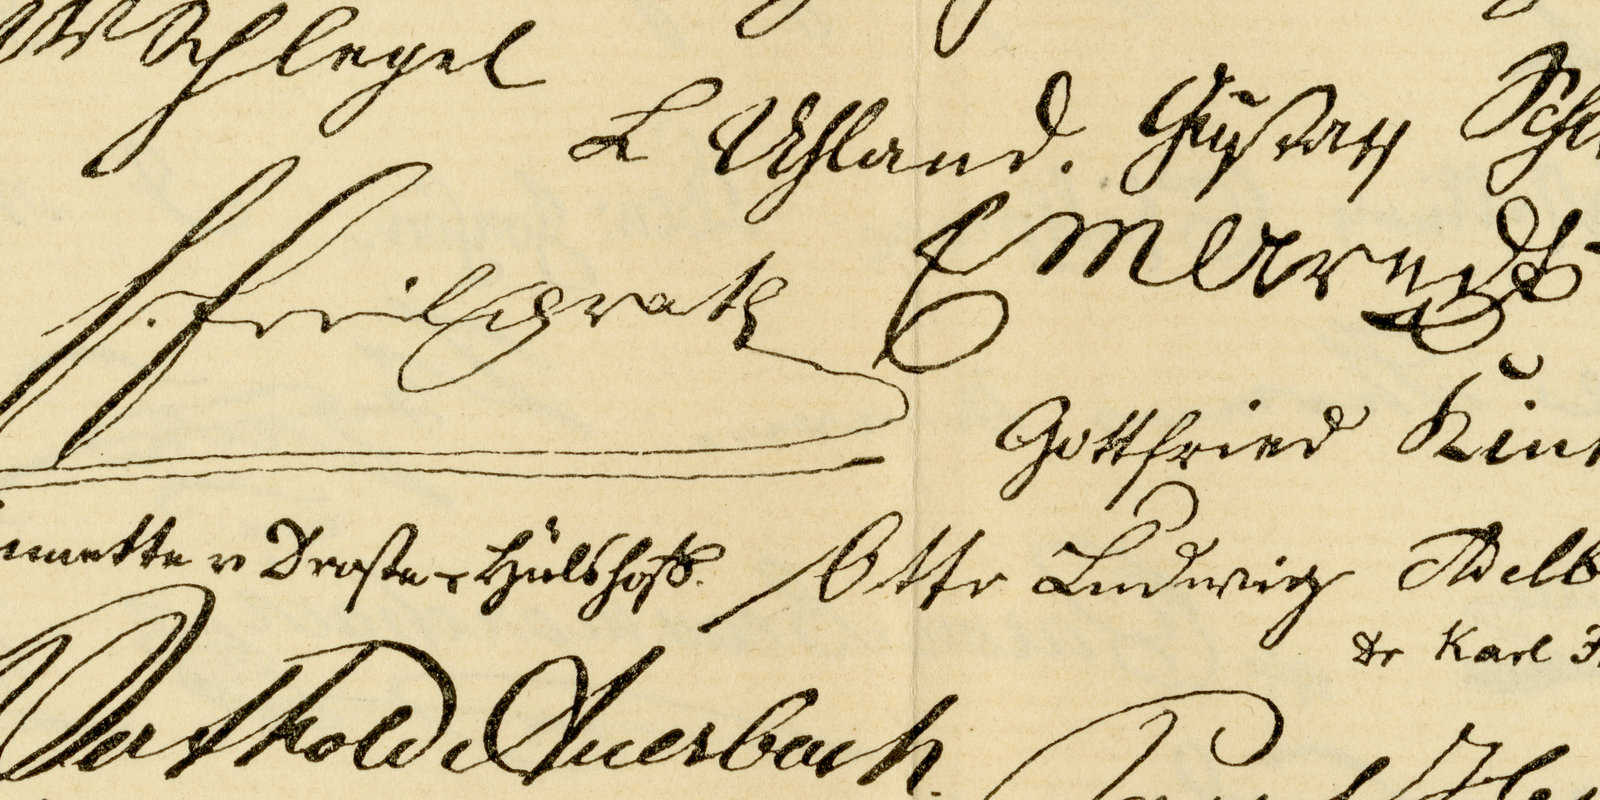 AW Schlegel
L Uhland. Gustav Sch
F. Freiligrath EMArndt
Gottfried Kink
nnette v Droste-Hülshoff. Otto Ludwig Adelb
Dr Karl
Berthold Auerbach.
Paul Hey